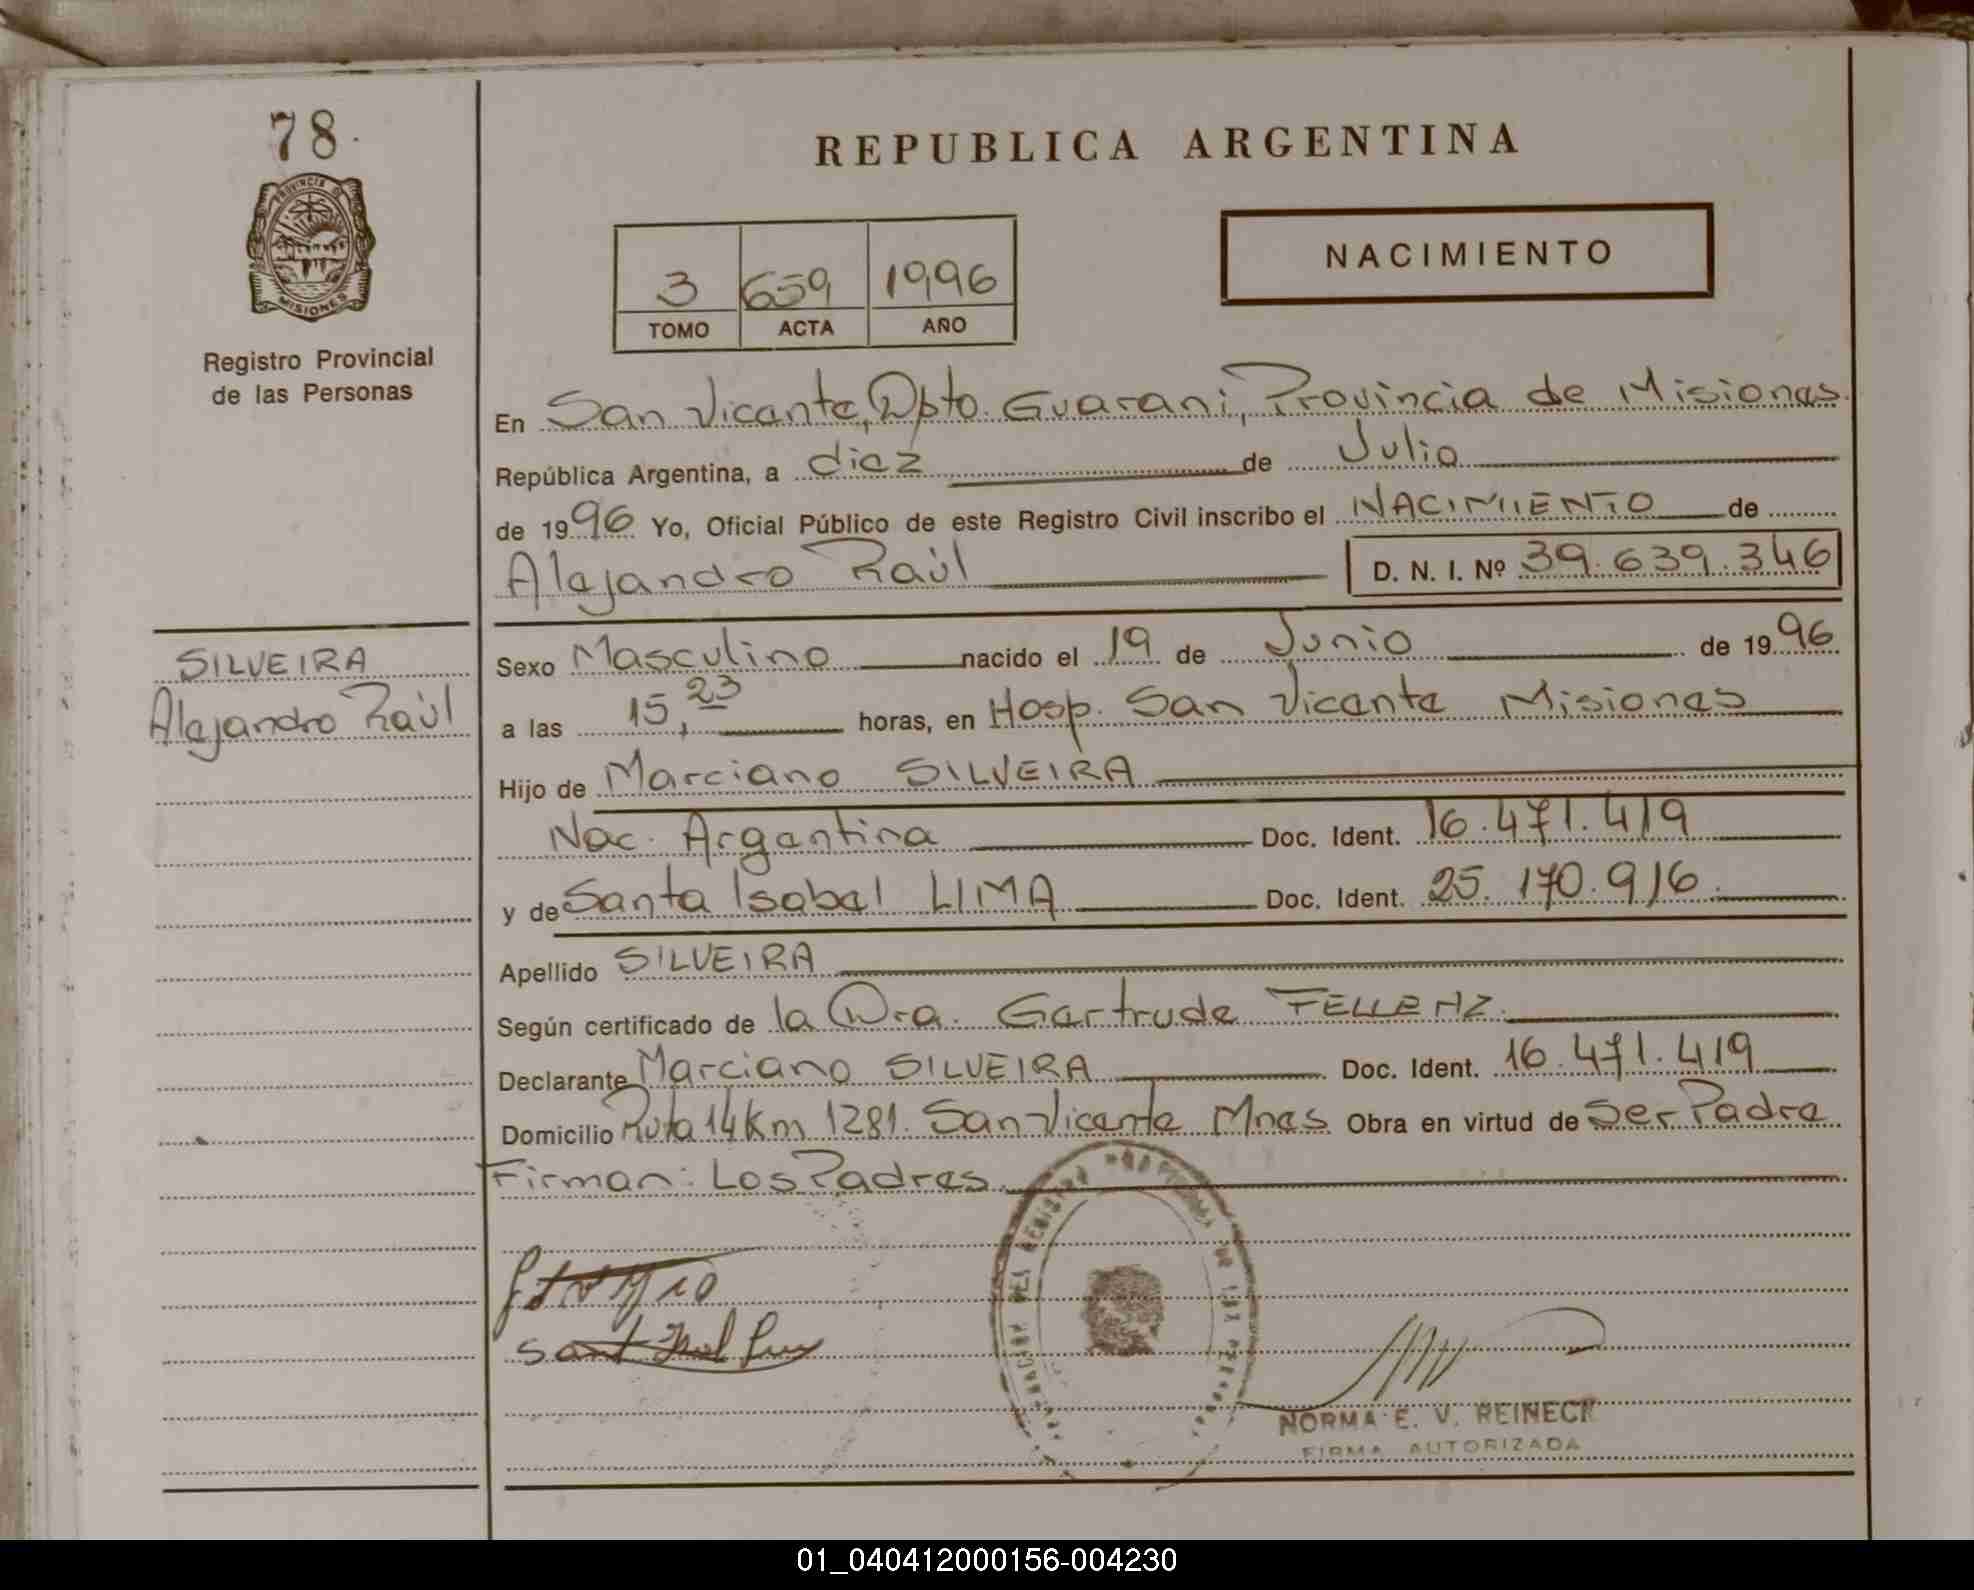 78.
PROVINCIA DE
MISIONES
Registro Provincial
de las Personas
SILVEIRA
Alejandro Raúl
REPUBLICA ARGENTINA
3 659 1996
TOMO ACTA AÑO
NACIMIENTO
En San Vicente, Dpto. Guarani, Provincia de Misiones.
República Argentina, a diez de Julio
de 1996 Yo, Oficial Público de este Registro Civil inscribo el NACIMIENTO de
Alejandro Raúl D. N. I. Nº 39.639.346
Sexo Masculino nacido el 19 de Junio de 1996
a las 15,23 horas, en Hosp. San Vicente Misiones
Hijo de Marciano SILVEIRA
Nac. Argentina Doc. Ident. 16.471.419
y de Santa Isabel LIMA Doc. Ident. 25.170.916.
Apellido SILVEIRA
Según certificado de la Dra. Gertrude FELLENZ.
Declarante Marciano SILVEIRA Doc. Ident. 16.471.419
Domicilio Ruta 14 Km 1281. San Vicente Mnes Obra en virtud de Ser Padre
Firman: Los Padres.
NORMA E. V. REINECK
FIRMA AUTORIZADA
01_040412000156-004230